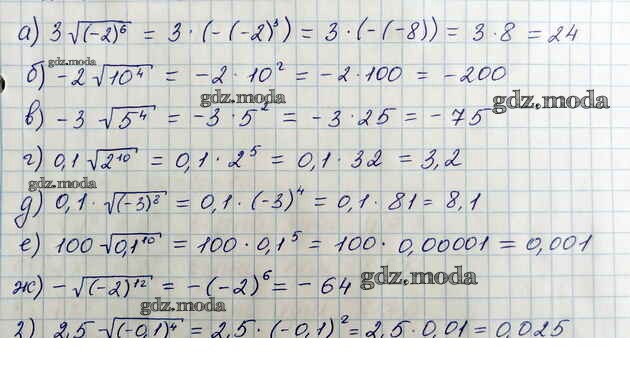 а) 3√(-2)⁶ = 3 · (-(-2)³) = 3 · (-(-8)) = 3 · 8 = 24
gdz.moda
б) -2√10⁴ = -2 · 10² = -2 · 100 = -200
gdz.moda
gdz.moda
в) -3 √5⁴ = -3 · 5² = -3 · 25 = -75
г) 0,1 · √2¹⁰ = 0,1 · 2⁵ = 0,1 · 32 = 3,2
gdz.moda
д) 0,1 · √(-3)⁸ = 0,1 · (-3)⁴ = 0,1 · 81 = 8,1
е) 100 √0,1¹⁰ = 100 · 0,1⁵ = 100 · 0,00001 = 0,001
ж) -√(-2)¹² = -(-2)⁶ = -64
gdz.moda
gdz.moda
з) 2,5 √(-0,1)⁴ = 2,5 · (-0,1)² = 2,5 · 0,01 = 0,025